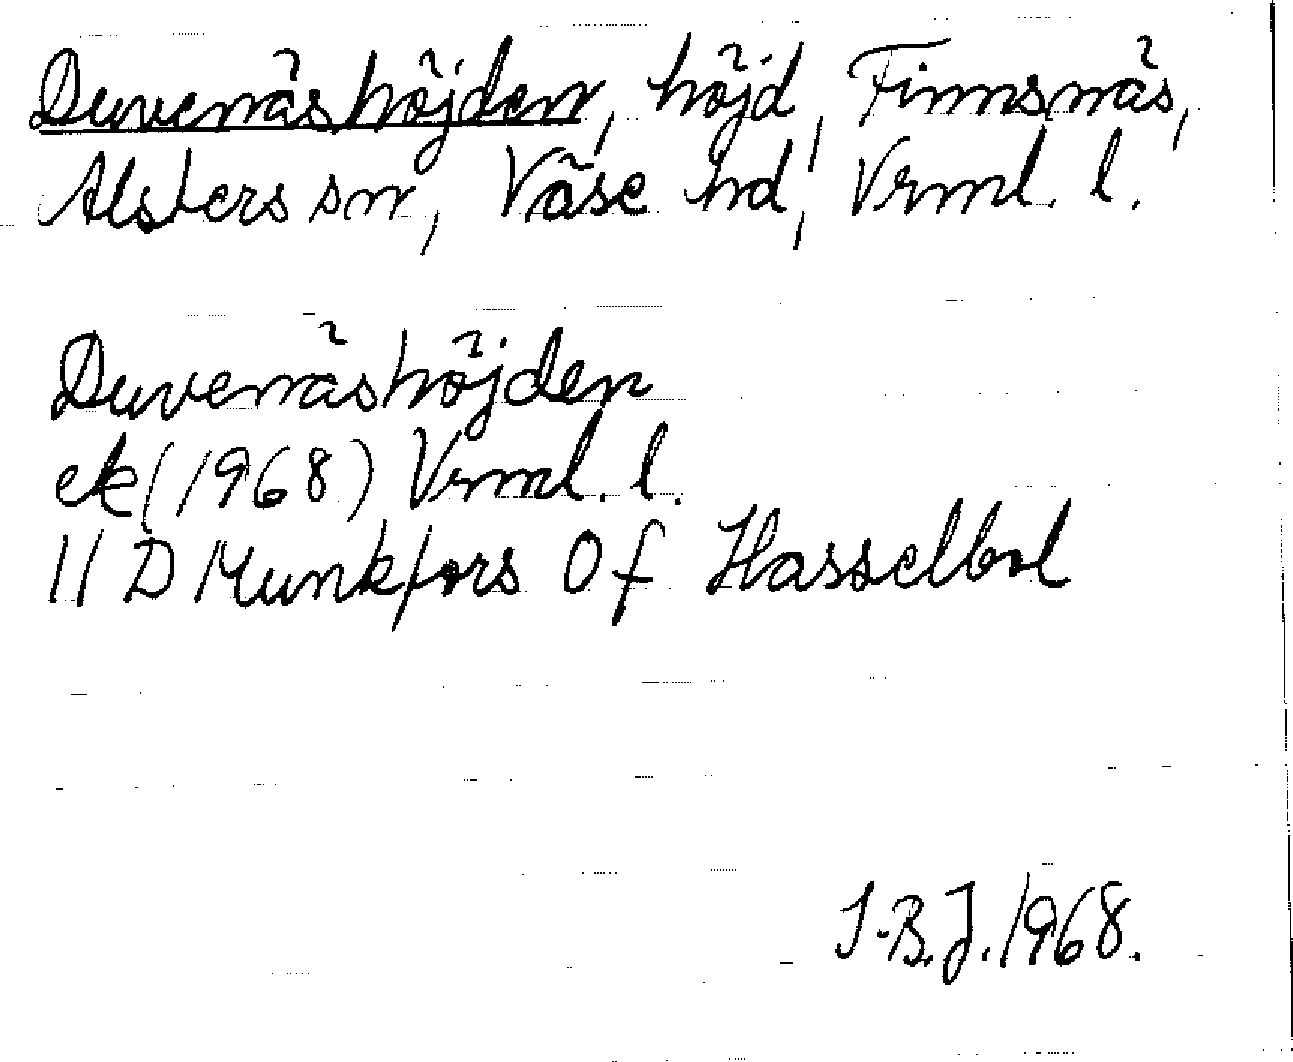 Duvenäshöjden, höjd, Finnsnäs,
Alsters sn, Väse hd, Vrml. l.
Duvenäshöjden
ek (1968) Vrml. l.
11 D Munkfors 0 f Hasselbol
I-B.J. 1968.